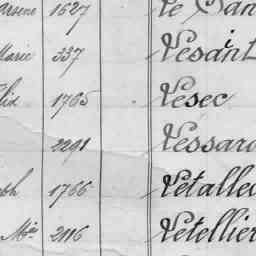 arsene 1627 Le
Marie 337 Vesant
lix 1765 Vesec
2291 Vessaro
ph 1766 Vetalle
Mie 2116 Vetellier